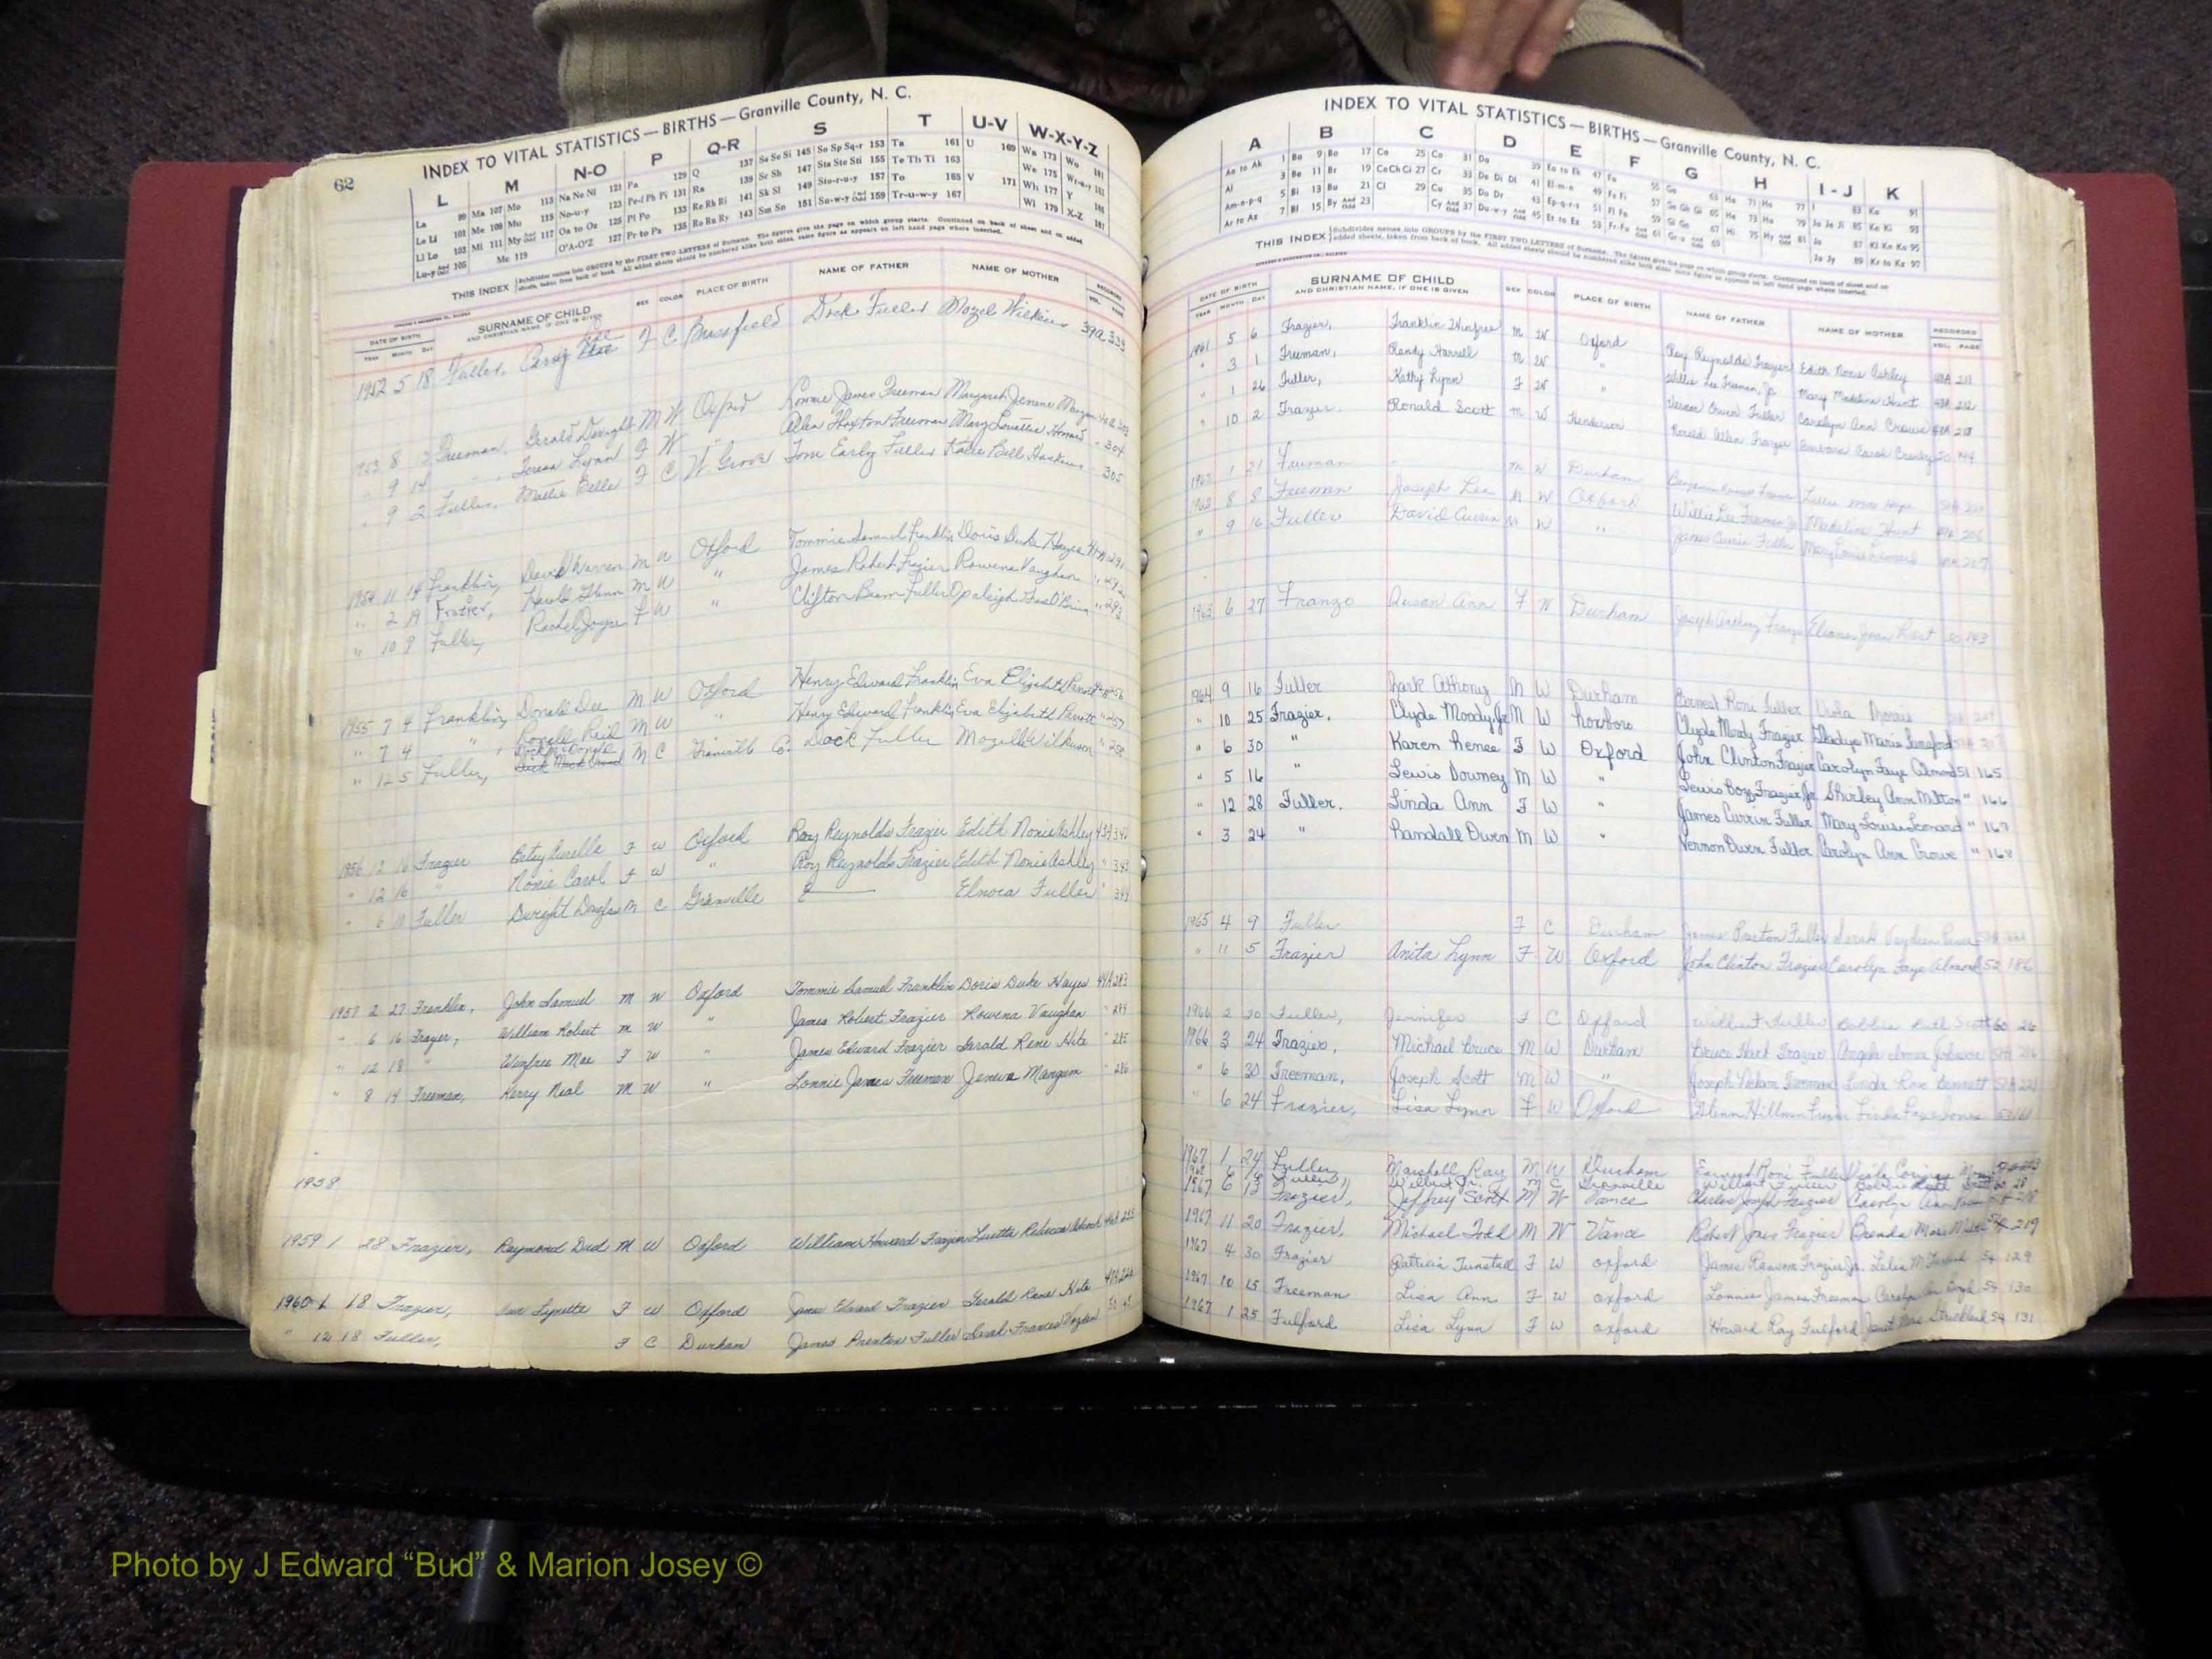 62
INDEX TO VITAL STATISTICS — BIRTHS — Granville County, N. C.
L M N-O P Q-R S T U-V W-X-Y-Z
La 99 Ma 107 Mo 113 Na Ne Ni 121 Pa 129 Q 137 Sa Se Si 145 So Sp Sq-r 153 Ta 161 U 169 Wa 173 Wo 181
Le Li 101 Me 109 Mu 115 No-u-y 123 Pe-f Ph Pi 131 Ra 139 Sc Sh 147 Sta Ste Sti 155 Te Th Ti 163 We 175
Ll Lo 103 Mi 111 My And Odd 117 Oa to Oz 125 Pl Po 133 Re Rh Ri 141 Sk Sl 149 Sto-r-u-y 157 To 165 V 171 Wh 177 Y
Lu-y And Odd 105 Mc 119 O'A-O'Z 127 Pr to Pz 135 Ro Ru Ry 143 Sm Sn 151 Su-w-y And Odd 159 Tr-u-w-y 167 Wi 179 X-Z 187
THIS INDEX Subdivides names into GROUPS by the FIRST TWO LETTERS of Surname. The figures give the page on which group starts. Continued on back of sheet and on added
sheets, taken from back of book. All added sheets should be numbered alike both sides, same figure as appears on left hand page where inserted.
DATE OF BIRTH SURNAME OF CHILD SEX COLOR PLACE OF BIRTH NAME OF FATHER NAME OF MOTHER RECORDED
YEAR MONTH DAY AND CHRISTIAN NAME, IF ONE IS GIVEN VOL. PAGE
1952 5 18 Fuller, F C Brassfield Dock Fuller Mozel Wilkins 39A 333
1953 8 12 Freeman, Gerald Dwight M W Oxford Lonnie James Freeman Margaret Jenene Mangum
" 9 14 " , Teresa Lynn F W " Allen Hoxton Freeman Mary Louettie Howard " 304
" 9 2 Fuller, Mattie Belle F C W Grove Tom Early Fuller Katie Bell Haskins " 305
1954 11 14 Franklin, David Warren M W Oxford Tommie Samuel Franklin Doris Duke Hayes
" 2 19 Frazier, Harold Glenn M W " James Robert Frazier Rowena Vaughan " 292
" 10 9 Fuller, Rachel Joyce F W " Clifton Beam Fuller " 293
1955 7 4 Franklin, Donald Dee M W Oxford Henry Edward Franklin Eva Elizabeth Parrott
" 7 4 " , Ronald Reid M W " Henry Edward Franklin Eva Elizabeth Parrott " 257
" 12 5 Fuller, M C Granville Co. Dock Fuller Mozelle Wilkerson " 258
1956 12 16 Frazier Betsy Aurella F W Oxford Roy Reynolds Frazier Edith Nonie Ashley
" 12 16 " Nonie Carol F W " Roy Reynolds Frazier Edith Nonie Ashley
" 6 11 Fuller Dwight Douglas M C Granville Elnora Fuller
1957 2 27 Franklin, John Samuel M W Oxford Tommie Samuel Franklin Doris Duke Hayes 44A 283
" 6 16 Frazer, William Robert M W " James Robert Frazier Rowena Vaughan " 284
" 12 18 " Winfree Mae F W " James Edward Frazier Gerald Rene Hite " 285
" 8 14 Freeman, Kerry Neal M W " Lonnie James Freeman Jeneva Mangum " 286
1958
1959 1 28 Frazier, Raymond Dud M W Oxford William Howard Frazier Luetta Rebecca
1960 1 18 Frazier, Lynette F W Oxford James Edward Frazier Gerald Rene Hite
" 12 18 Fuller, F C Durham James Preston Fuller Sarah Frances
INDEX TO VITAL STATISTICS — BIRTHS — Granville County, N. C.
A B C D E F G H I-J K
Aa to Ak 1 Ba 9 Bo 17 Ca 25 Co 31 Da 39 Ea to Ek 47 Fa 55 Ga 63 Ha 71 Ho 77 I 83 Ka 91
Al 3 Be 11 Br 19 Ce Ch Ci 27 Cr 33 De Di Dl 41 El-m-n 49 Fe Fi 57 Ge Gh Gi 65 He 73 Hu 79 Ja Je Ji 85 Ke Ki 93
Am-n-p-q 5 Bi 13 Bu 21 Cl 29 Cu 35 Do Dr 43 Ep-q-r-s 51 Fl Fo 59 Gl Go 67 Hi 75 Hy And Odd 81 Jo 87 Kl Kn Ko 95
Ar to Az 7 Bl 15 By And Odd 23 Cy And Odd 37 Du-w-y And Odd 45 Et to Ez 53 Fr-Fu And Odd 61 Gr-u And Odd 69 Ju Jy 89 Kr to Kz 97
THIS INDEX Subdivides names into GROUPS by the FIRST TWO LETTERS of Surname. The figures give the page on which group starts. Continued on back of sheet and on
added sheets, taken from back of book. All added sheets should be numbered alike both sides, same figure as appears on left hand page where inserted.
DATE OF BIRTH SURNAME OF CHILD SEX COLOR PLACE OF BIRTH NAME OF FATHER NAME OF MOTHER RECORDED
YEAR MONTH DAY AND CHRISTIAN NAME, IF ONE IS GIVEN VOL. PAGE
1961 5 6 Frazier, Franklin Winfree M W Oxford Roy Reynolds Frazier Edith Nonie Ashley 48A 211
" 3 1 Freeman, Randy Harrell M W " Willie Lee Freeman, Jr Mary Madeline Hunt 48A 212
" 1 26 Fuller, Kathy Lynn F W " Vernon Owen Fuller Carolyn Ann Crowe 48A 213
" 10 2 Frazier. Ronald Scott M W Henderson Harold Allen Frazier Barbara Carol Crosby
1962 1 21 Freeman M W Durham Lillie Mae
1962 8 8 Freeman Joseph Lee M W Oxford Willie Lee Freeman Jr Madeline Hunt 206
" 9 16 Fuller David Currin M W " James Currin Fuller Mary Louise Leonard 207
1963 6 27 Franzo Susan Ann F W Durham Joseph Anthony Franzo Eleanor Jean 143
1964 9 16 Fuller Mark Athony M W Durham Earnest Roni Fuller Viola Morris
" 10 25 Frazier. Clyde Moody, Jr M W Roxboro Clyde Moody Frazier Gladys Marie Lunsford
" 6 30 " Karen Renee F W Oxford John Clinton Frazier Carolyn Faye Almond 51 165
" 5 16 " Lewis Downey M W " Lewis Boyd Frazier Jr Shirley Ann Milton " 166
" 12 28 Fuller. Linda Ann F W " James Currin Fuller Mary Louise Leonard " 167
" 3 24 " Randall Owen M W " Vernon Owen Fuller Carolyn Ann Crowe " 168
1965 4 9 Fuller F C Durham James Preston Fuller Sarah
" 11 5 Frazier Anita Lynn F W Oxford John Clinton Frazier Carolyn Faye Almond 52 186
1966 2 20 Fuller, Jennifer F C Oxford Wilbert Fuller Bobbie Scott 60 26
1966 3 24 Frazier, Michael Bruce M W Durham Bruce Frazier Angela Johnson
" 6 30 Freeman, Joseph Scott M W " Joseph Nelson Freeman Linda Rose Bennett
" 6 24 Frazier, Lisa Lynn F W Oxford Glenn Hillman Frazier Linda Faye Jones 53 161
1967 1 24 Fuller, Marshall Ray M W Durham Earnest Roni Fuller
Fuller, Wilbert Jr. M C Granville Wilbert Fuller
1967 6 13 Frazier, Jeffrey Scott M W Vance Charles Joseph Frazier Carolyn Ann
1967 11 20 Frazier, Michael Todd M W Vance Robert Jones Frazier Brenda Mae 54 219
1967 4 30 Frazier Patricia Tunstall F W Oxford James Ransom Frazier Jr. Lelia M 54 129
1967 10 15 Freeman Lisa Ann F W Oxford Lonnie James Freeman 54 130
1967 1 25 Fulford Lisa Lynn F W Oxford Howard Ray Fulford Janet Mae Strickland 54 131
Photo by J Edward “Bud” & Marion Josey ©